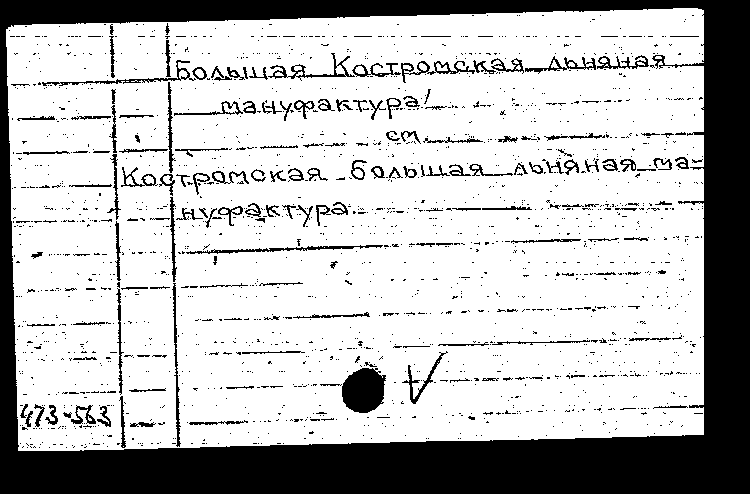 Большая Костромская льняная
мануфактура/
см.
Костромская большая льняная ма-
нуфактура.
473-563